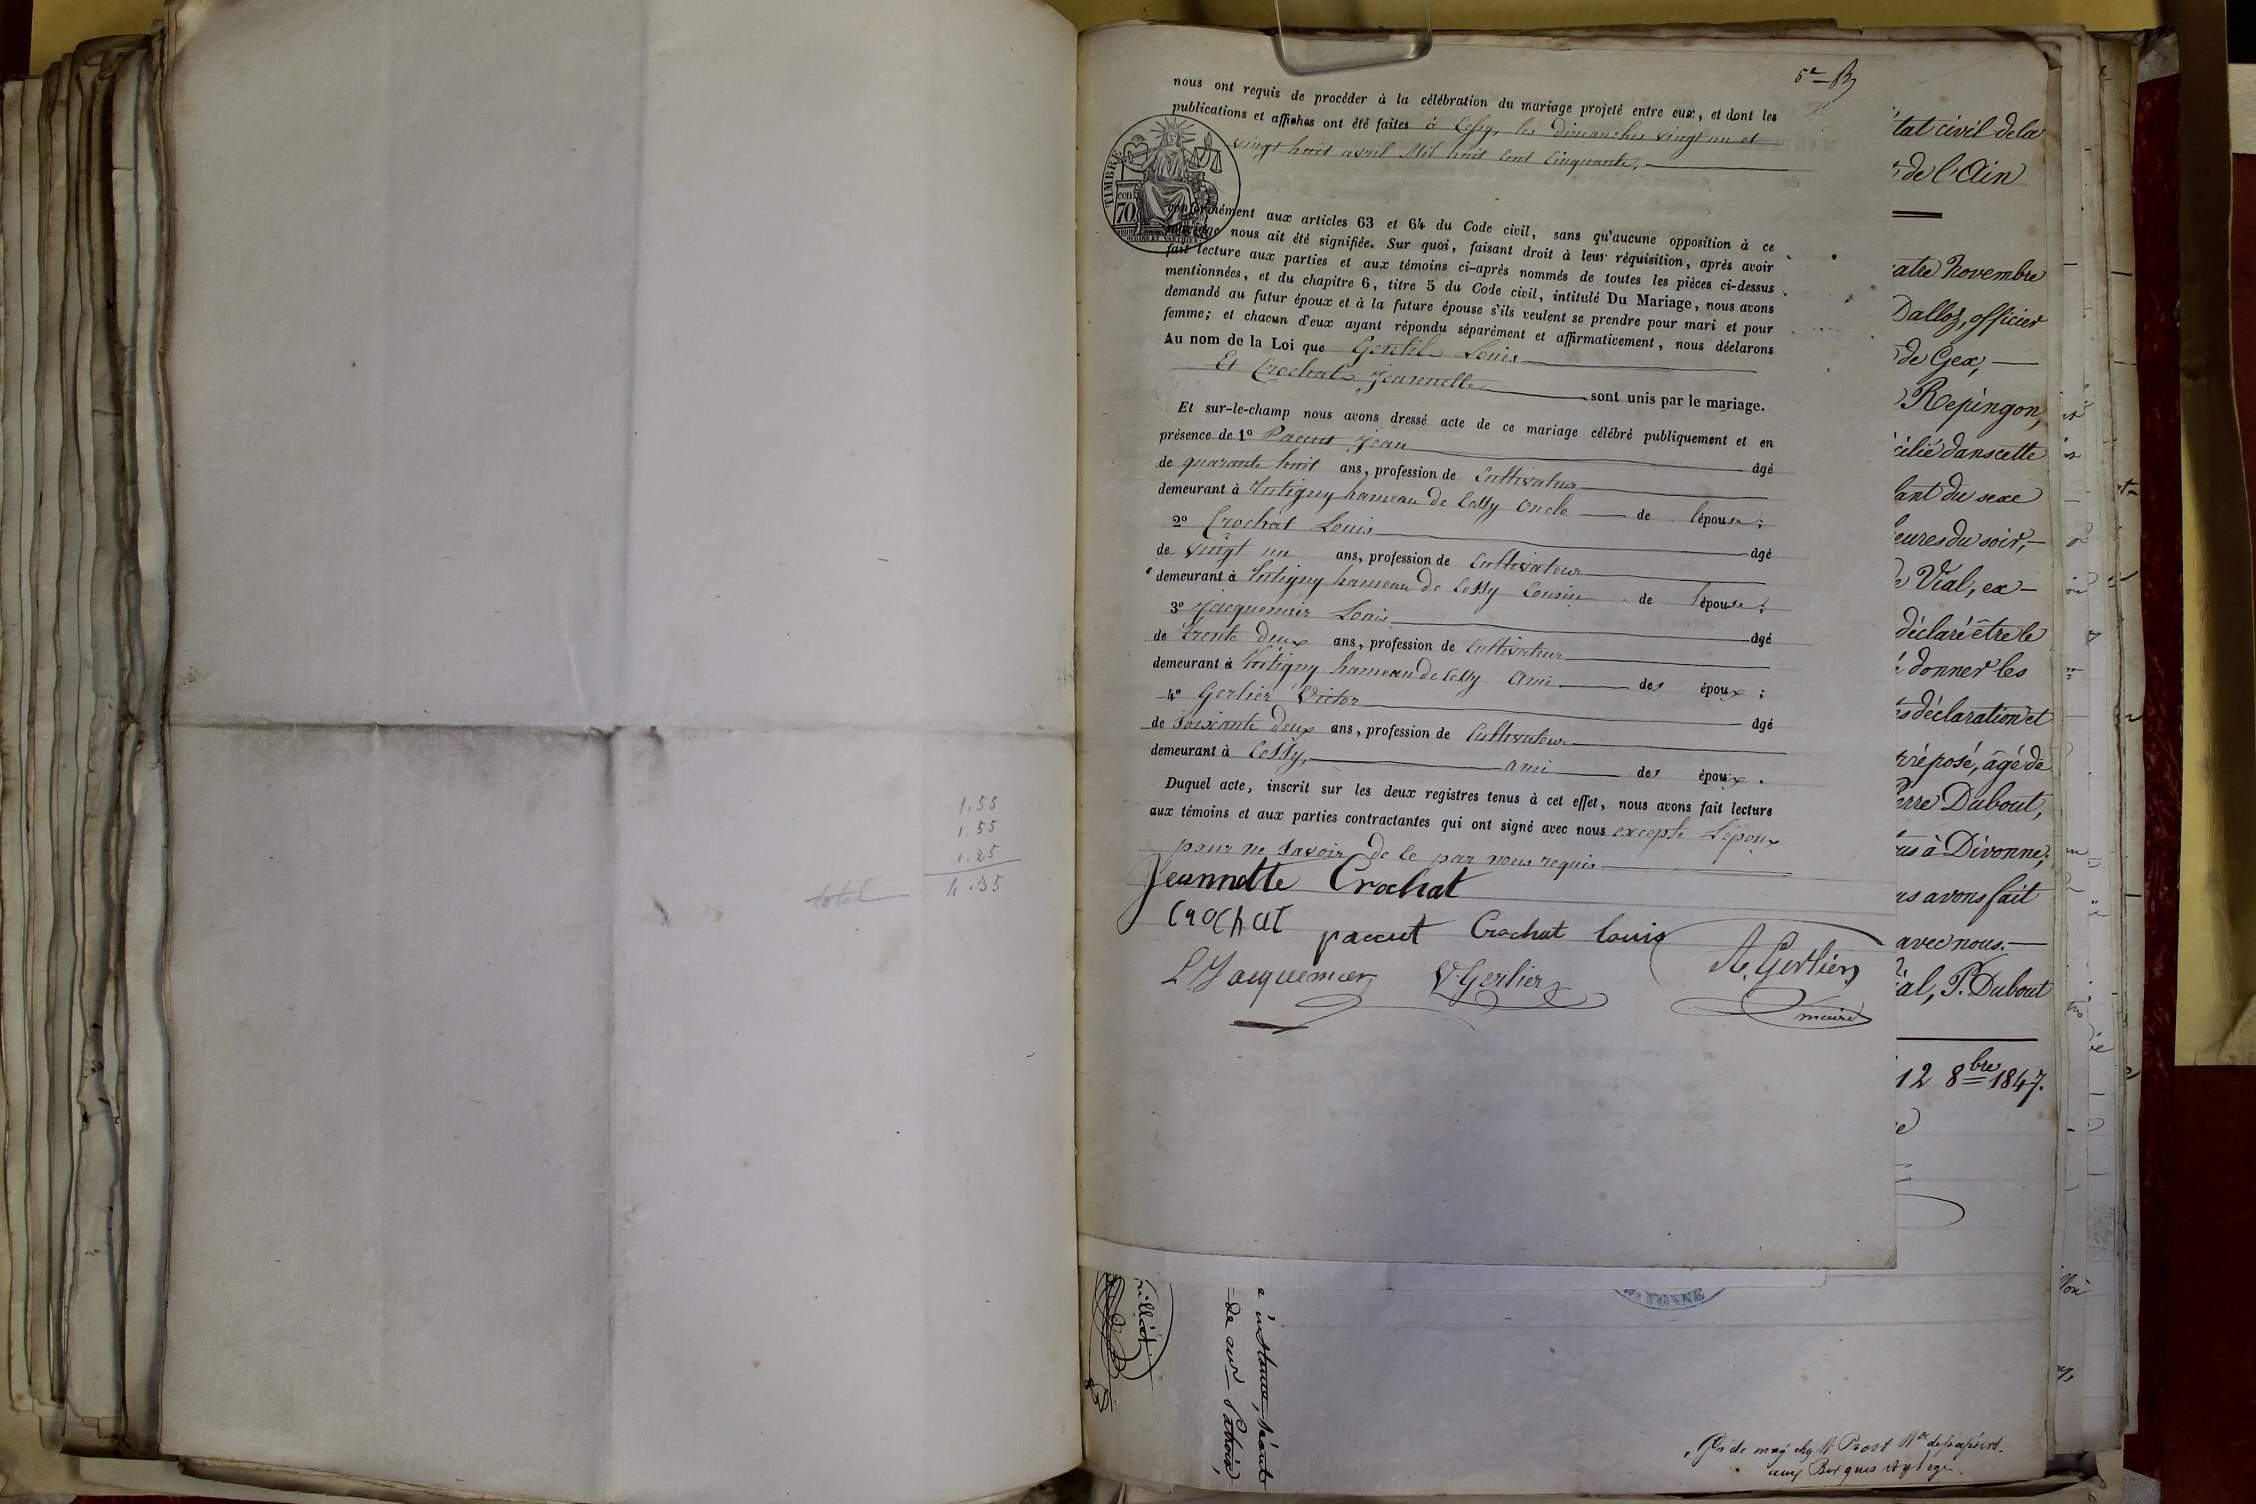 1.55
1.55
1.25
total 4.35
5e
nous ont requis de procéder à la célébration du mariage projeté entre eux, et dont les
publications et affiches ont été faites à Cessy, les dimanches vingt un et
vingt huit avril Mil huit cent cinquante,
TIMBRE
cen
70
conformément aux articles 63 et 64 du Code civil, sans qu'aucune opposition à ce
mariage nous ait été signifiée. Sur quoi, faisant droit à leur réquisition, après avoir
fait lecture aux parties et aux témoins ci-après nommés de toutes les pièces ci-dessus
mentionnées, et du chapitre 6, titre 5 du Code civil, intitulé Du Mariage, nous avons
demandé au futur époux et à la future épouse s'ils veulent se prendre pour mari et pour
femme; et chacun d'eux ayant répondu séparément et affirmativement, nous déclarons
Au nom de la Loi que Gentil Louis
Et Crochat Jeannette sont unis par le mariage.
Et sur-le-champ nous avons dressé acte de ce mariage célébré publiquement et en
présence de 1o Paccut Jean âgé
de quarante huit ans, profession de Cultivateur
demeurant à Tutigny hameau de Cessy oncle de l'épouse;
2o Crochat Louis âgé
de vingt un ans, profession de Cultivateur
demeurant à Tutigny hameau de Cessy Cousin de l'épouse;
3o Jacquemier Louis âgé
de trente deux ans, profession de Cultivateur
demeurant à Tutigny hameau de Cessy ami des époux;
4o Gerlier Victor âgé
de soixante deux ans, profession de Cultivateur
demeurant à Cessy, ami des époux.
Duquel acte, inscrit sur les deux registres tenus à cet effet, nous avons fait lecture
aux témoins et aux parties contractantes qui ont signé avec nous excepté l'époux
pour ne savoir de ce par nous requis
Jeannette Crochat
Crochat paccut Crochat louis
L Jacquemier V. Gerlier A. Gerlier
maire
état civil de la
de l'Ain
atre Novembre
Dalloz, officier
de Gex,
Repingon,
cilié dans cette
fant du sexe
eures du soir,
Vial, ex-
déclaré être le
donner les
déclaration et
préposé, âgé de
ierre Dubout,
us à Divonne;
us avons fait
avec nous.
ial, P. Dubout
12 8bre 1847.
instance, séant